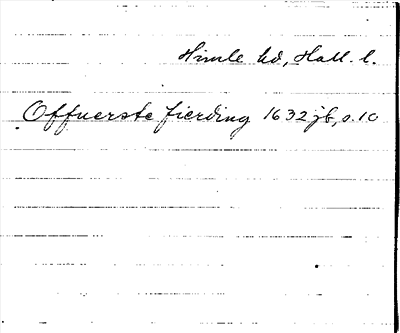 Himle hd, Hall. l.
Offuerste fierding 1632 jb, s. 10